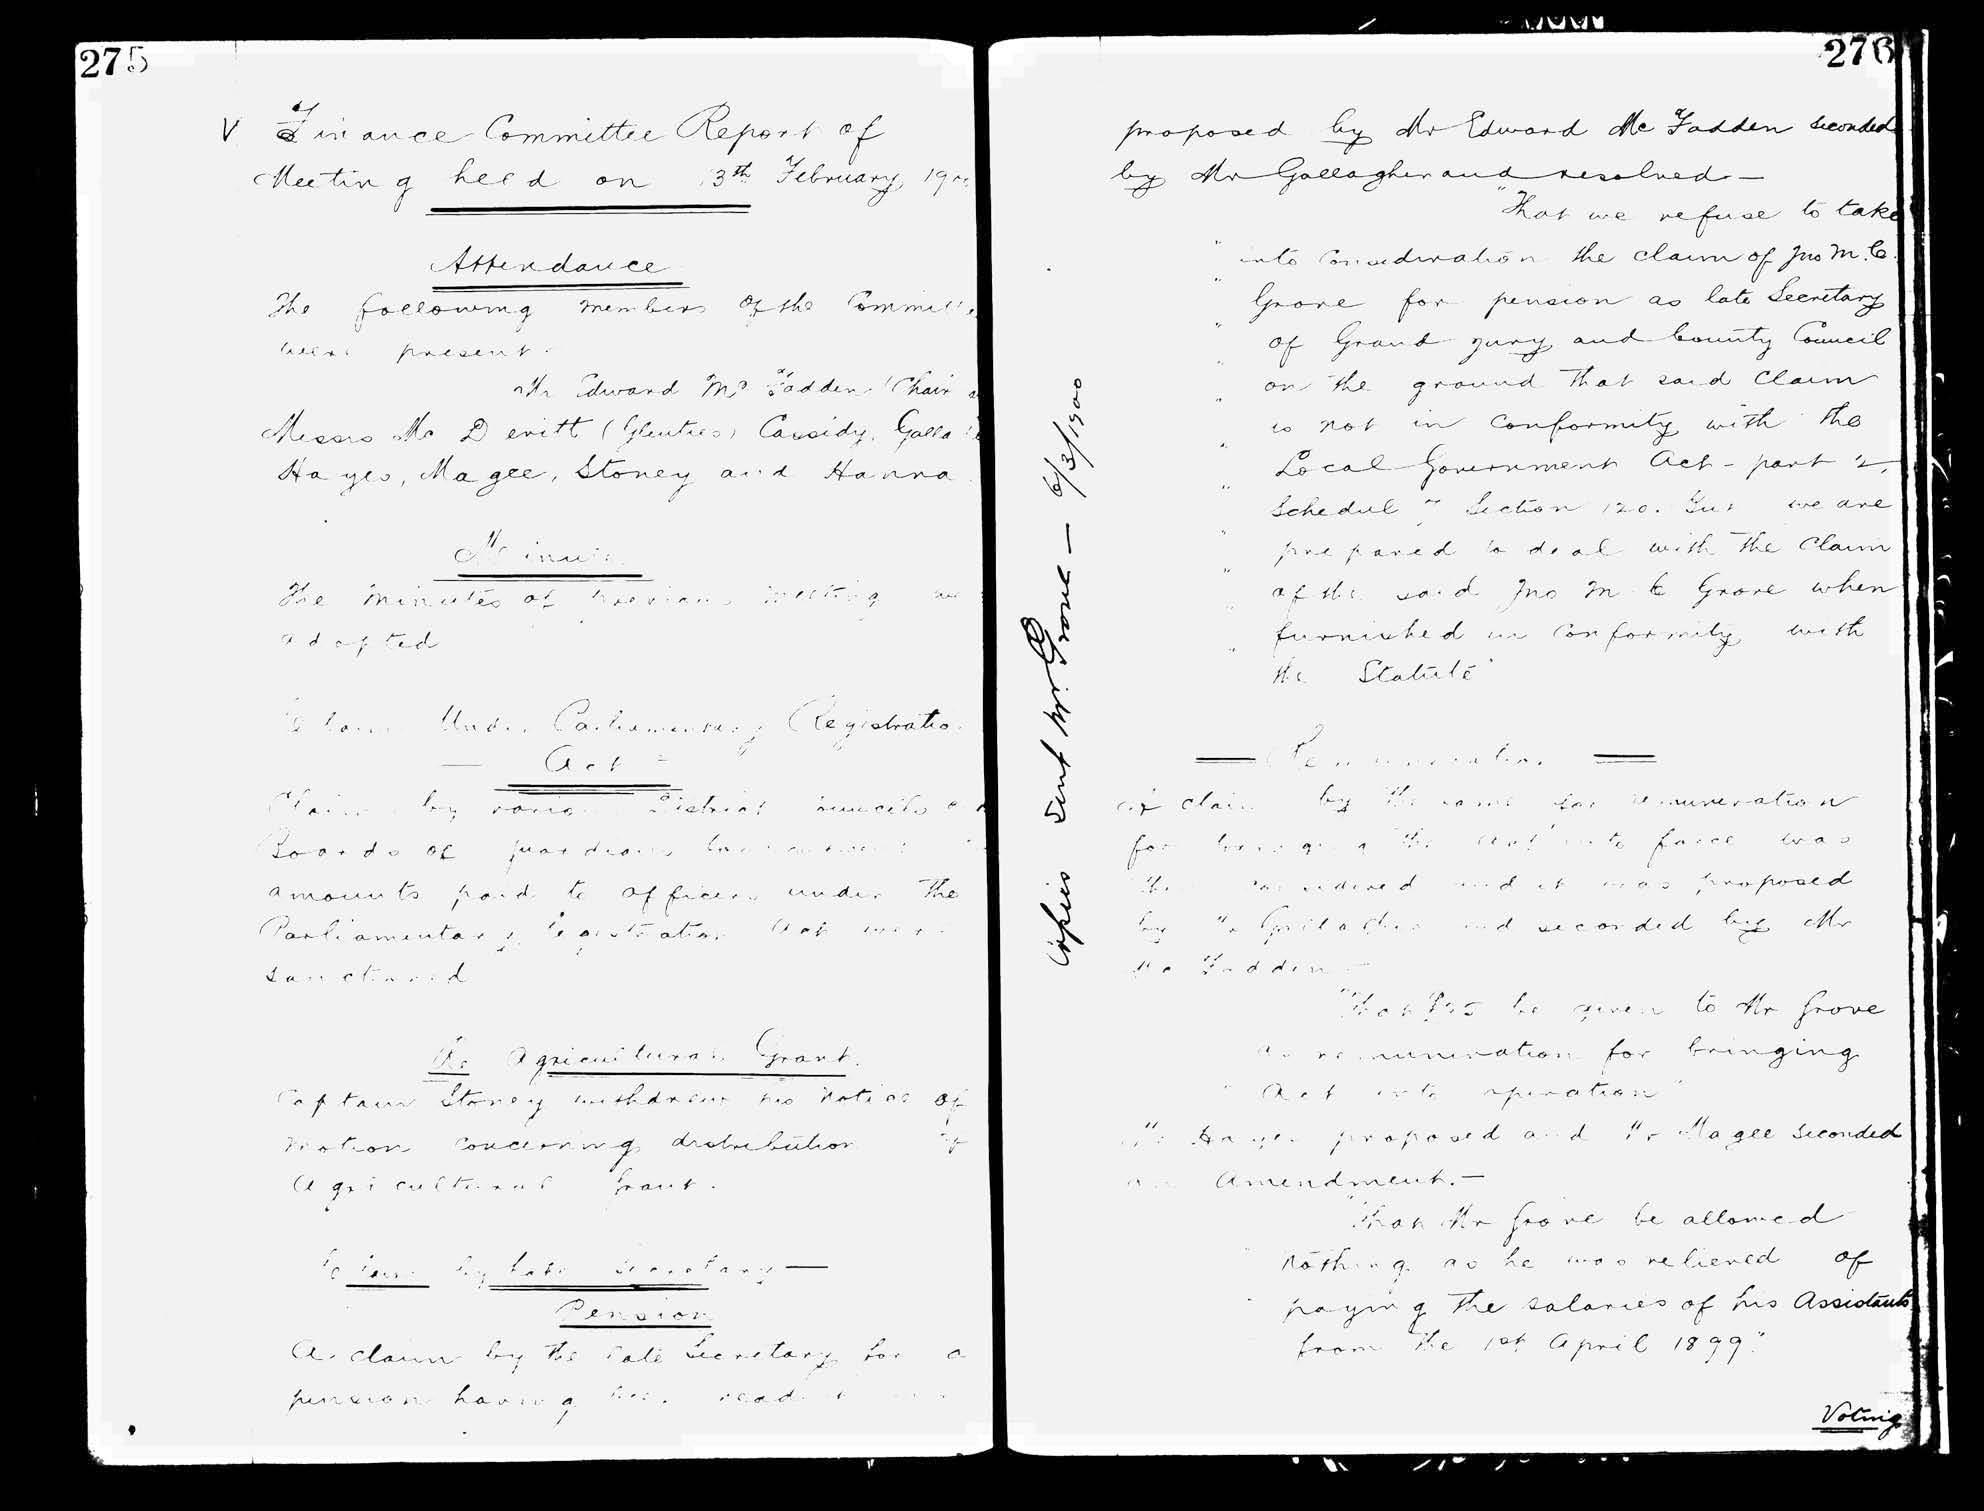 275
V Finance Committee Report of
Meeting held on 13th February, 19
Attendance
The following members of the Committe
were present.
Mr Edward Mc Fadden (Chair
Messrs Mc Devitt (Glenties) Cassidy, Galla
Hayes, Magee, Stoney and Hanna
Minu
The Minutes of previous meeting we
adopted
Under Parliamentary Registratio
Act
Claims by various District Councils
Boards of guardians
amounts paid to officers under the
Parliamentary Registration Act were
sanctioned
Re Agricultural Grant.
Captain Stoney withdrew his notice of
motion concerning distribution of
Agricultural Grant.
Claim by late Secretary —
Pension
A claim by the late Secretary for a
pension having been read it
Copies sent Mr. Grove — 6/3/1900
276
proposed by Mr Edward Mc Fadden seconded
by Mr Gallagher and resolved —
"That we refuse to take
" into consideration the claim of Jno M. C.
" Grove for pension as late Secretary
" of Grand jury and County Council
" on the ground that said claim
" is not in conformity with the
" Local Government Act - part 2,
" Schedul Section 120. But we are
" prepared to deal with the claim
" of the said Jno M C Grove when
" furnished in conformity with
" the Statute"
— Remuneration —
A claim by the same for remuneration
for bringing the Act into force was
then considered and it was proposed
by Mr Gallagher and seconded by Mr
Mc Fadden —
"That £25 be given to Mr Grove
as remuneration for bringing
" Act into operation"
Mr Hayes proposed and Mr Magee seconded
an Amendment. —
"That Mr Grove be allowed
" nothing as he was relieved of
" paying the salaries of his Assistants
from the 1st April 1899."
Voting